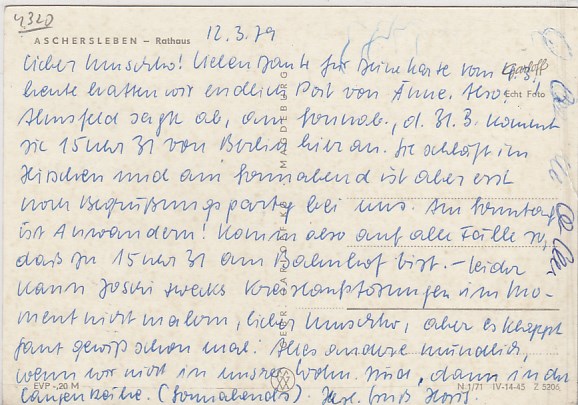 4320
ASCHERSLEBEN – Rathaus 12.3.79
Lieber Muschko! Vielen Dank für Deine Karte vom 9.3.!
heute hatten wir endlich Post von Anne. Also:
Echt Foto
Ahnsfeld sagt ab, am Sonnab., d. 31.3. kommt
sie 15 Uhr 31 von Berlin hier an. Sie schläft im
Hirschen und am Sonnabend ist aber erst
noch Begrüßungsparty bei uns. Am Sonntag
ist Anwandern! Komm also auf alle Fälle so,
daß Du 15 Uhr 31 am Bahnhof bist. – Leider
kann Joschi zwecks Kreislaufstörungen im Mo-
ment nicht malern, lieber Muschko, aber es klappt
ganz gewiß schon mal. Alles andere mündlich,
wenn wir nicht in unserer Wohn. sind, dann in der
Langen Reihe. (Sonnabends). Herzl. Gruß Horst
EVP -,20 M
N 1/71 IV-14-45 Z 5206
MAGDEBURG